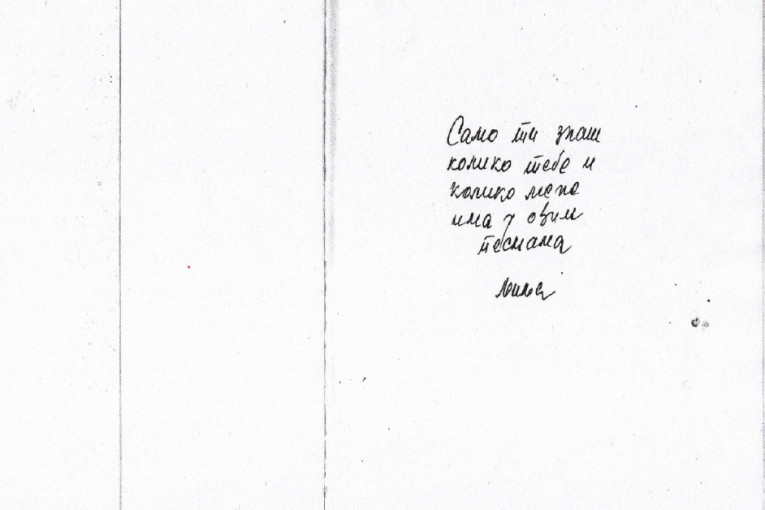 Само ти знаш
колико тебе и
колико мене
има у овим
песмама